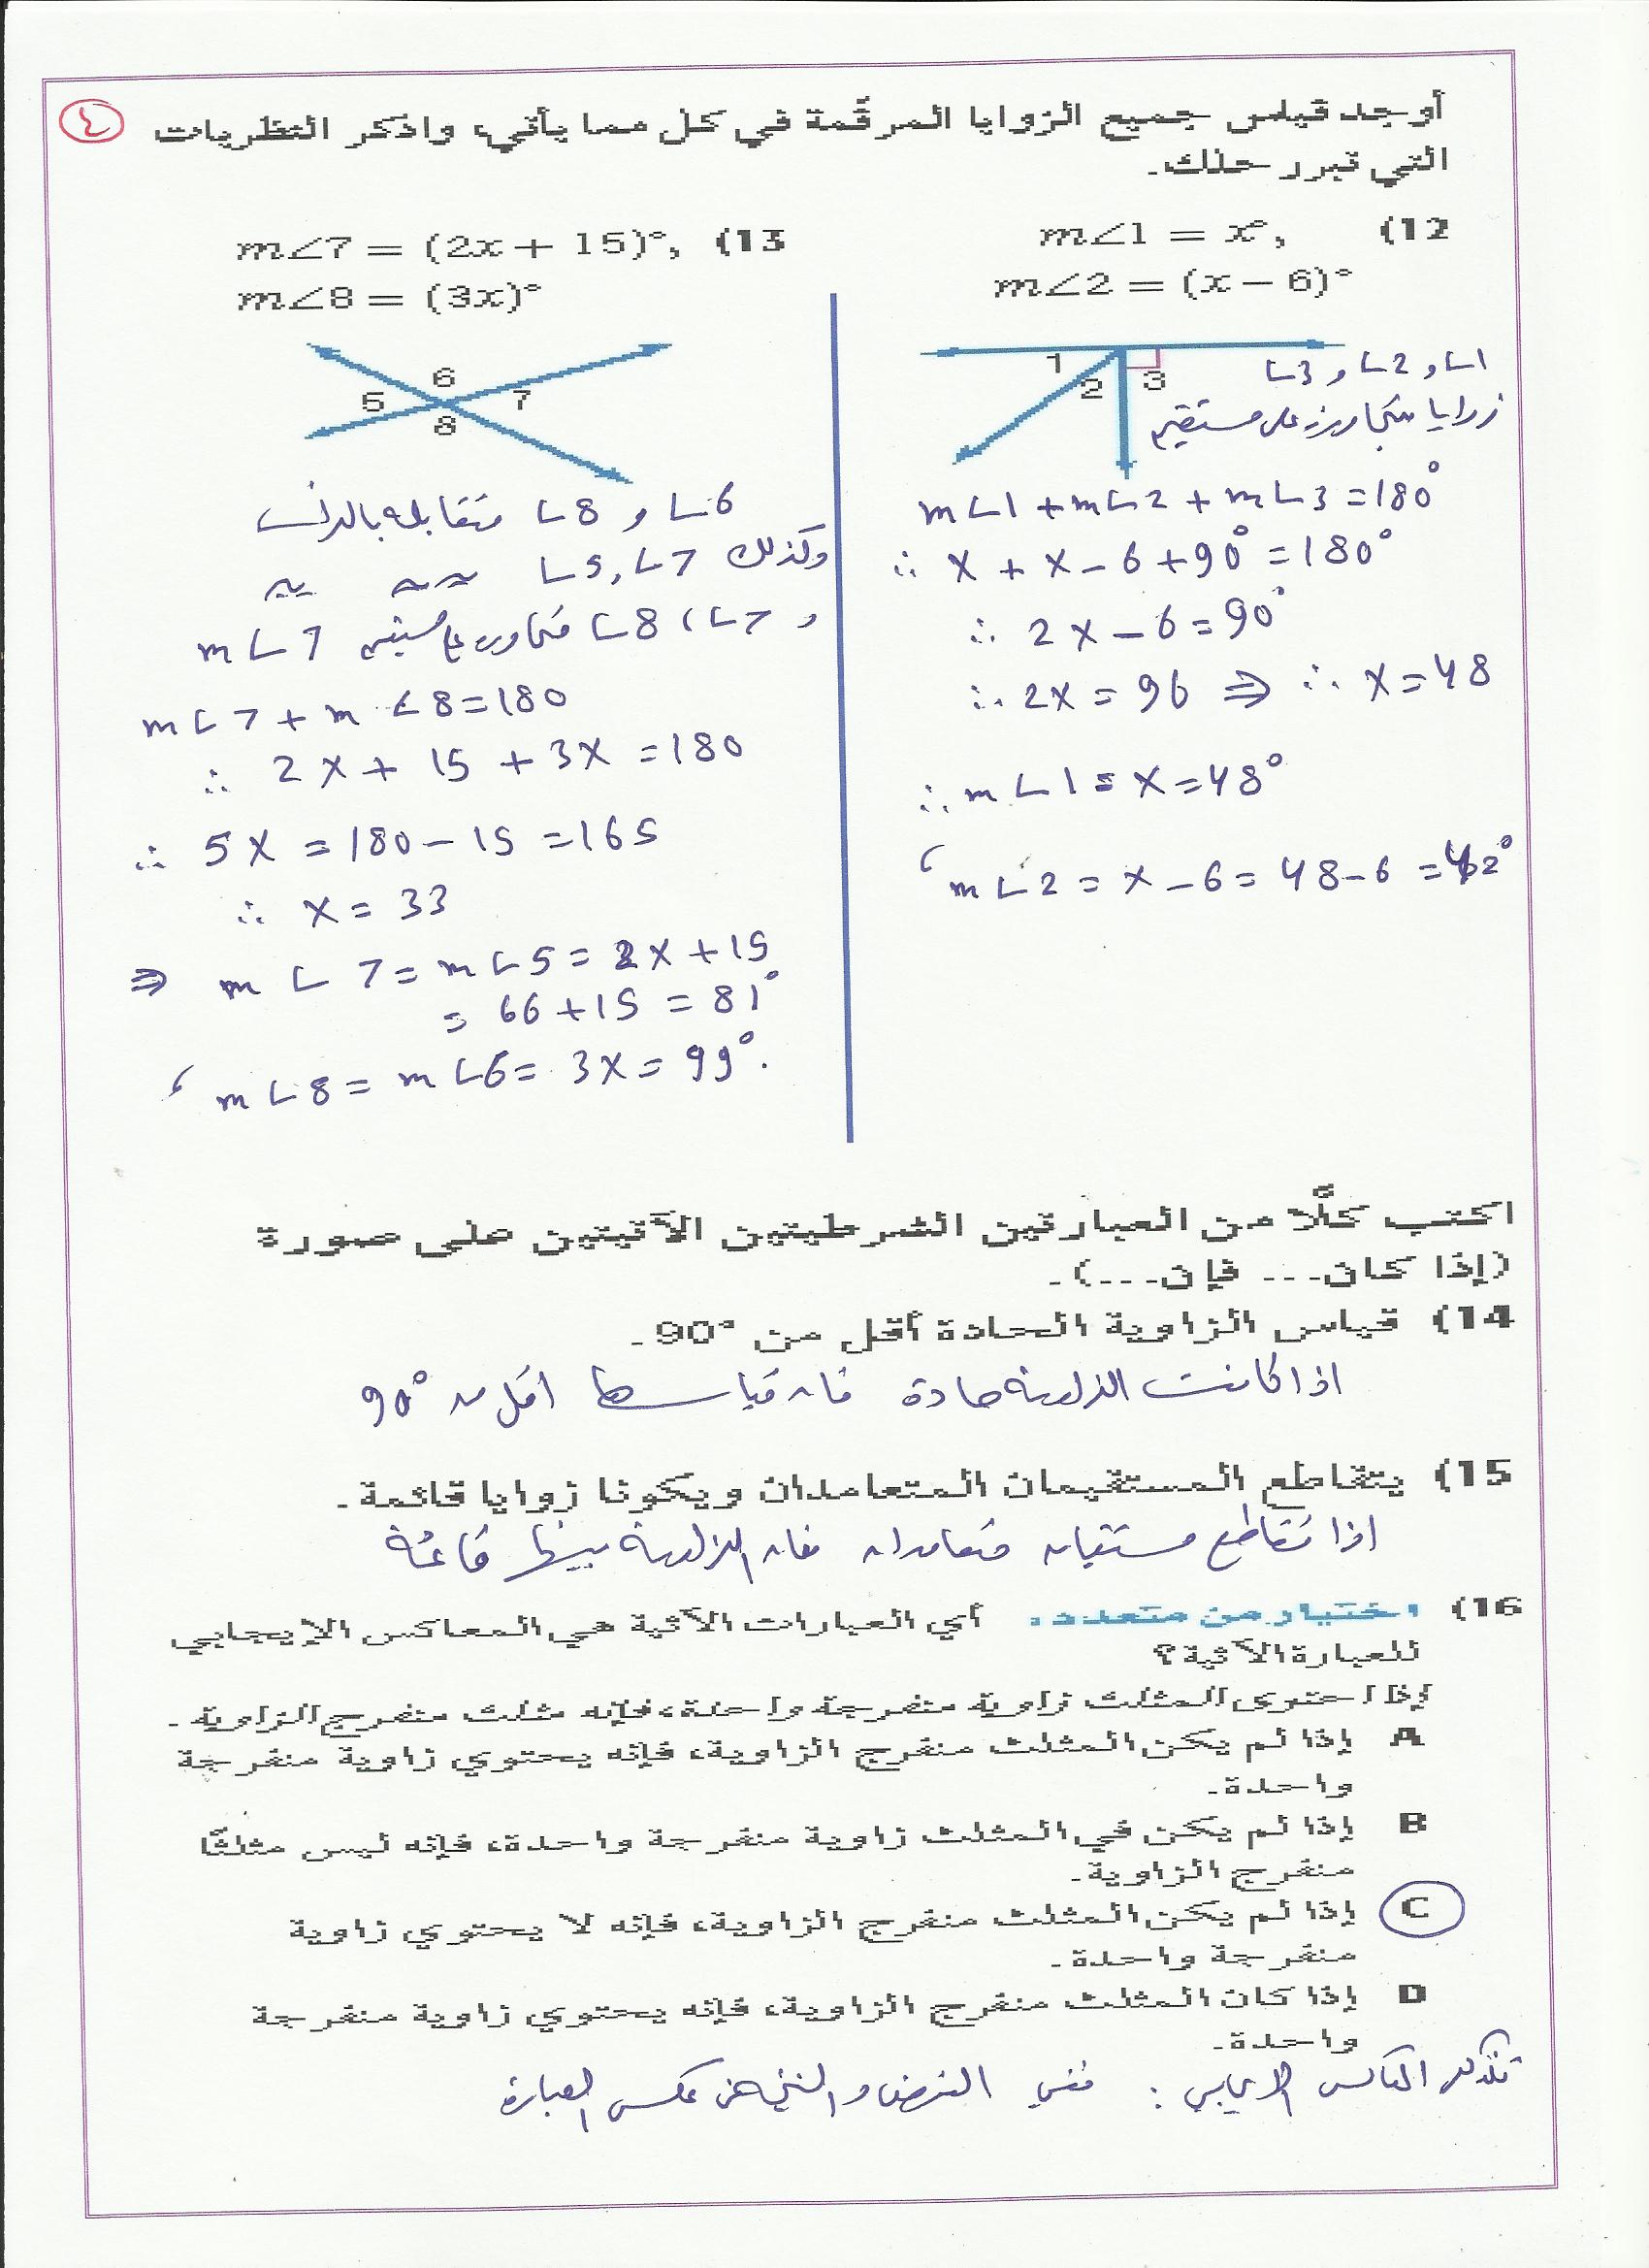 ٤
أوجد قياس جميع الزوايا المرقّمة في كل مما يأتي، واذكر النظريات
التي تبرر حلك.
12) m∠1 = x°,
m∠2 = (x − 6)°
1 2 3
∠1 و ∠2 و ∠3
زوايا متجاورة على مستقيم
m∠1 + m∠2 + m∠3 = 180°
∴ x + x − 6 + 90° = 180°
∴ 2x − 6 = 90°
∴ 2x = 96 ⇒ ∴ x = 48
∴ m∠1 = x = 48°
، m∠2 = x − 6 = 48 − 6 = 42°
13) m∠7 = (2x + 15)°,
m∠8 = (3x)°
5 6 7 8
∠6 و ∠8 متقابلة بالرأس
وكذلك ∠5, ∠7 〃 〃
و ∠7 ، ∠8 متجاورة على مستقيم m∠7
m∠7 + m∠8 = 180
∴ 2x + 15 + 3x = 180
∴ 5x = 180 − 15 = 165
∴ x = 33
⇒ m∠7 = m∠5 = 2x + 15
= 66 + 15 = 81°
، m∠8 = m∠6 = 3x = 99°.
اكتب كلًّا من العبارتين الشرطيتين الآتيتين على صورة
(إذا كان... فإن...).
14) قياس الزاوية الحادة أقل من 90°.
اذا كانت الزاوية حادة فان قياسها اقل من 90°
15) يتقاطع المستقيمان المتعامدان ويكونا زوايا قائمة.
اذا تقاطع مستقيمان متعامدان فان الزاوية بينها قائمة
16) اختيار من متعدد: أي العبارات الآتية هي المعاكس الإيجابي
للعبارة الآتية؟
إذا احتوى المثلث زاوية منفرجة واحدة، فإنه مثلث منفرج الزاوية.
A إذا لم يكن المثلث منفرج الزاوية، فإنه يحتوي زاوية منفرجة
واحدة.
B إذا لم يكن في المثلث زاوية منفرجة واحدة، فإنه ليس مثلثًا
منفرج الزاوية.
C إذا لم يكن المثلث منفرج الزاوية، فإنه لا يحتوي زاوية
منفرجة واحدة.
D إذا كان المثلث منفرج الزاوية، فإنه يحتوي زاوية منفرجة
واحدة.
تذكر المعاكس الايجابي : نفي الفرض والنتيجة في عكس العبارة